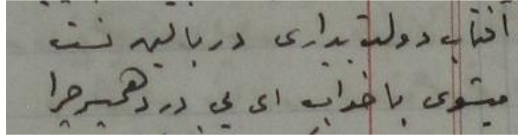 آفتاب دولت بیداری در بالین تست
میشوی با خواب ای بی درد همبستر چرا